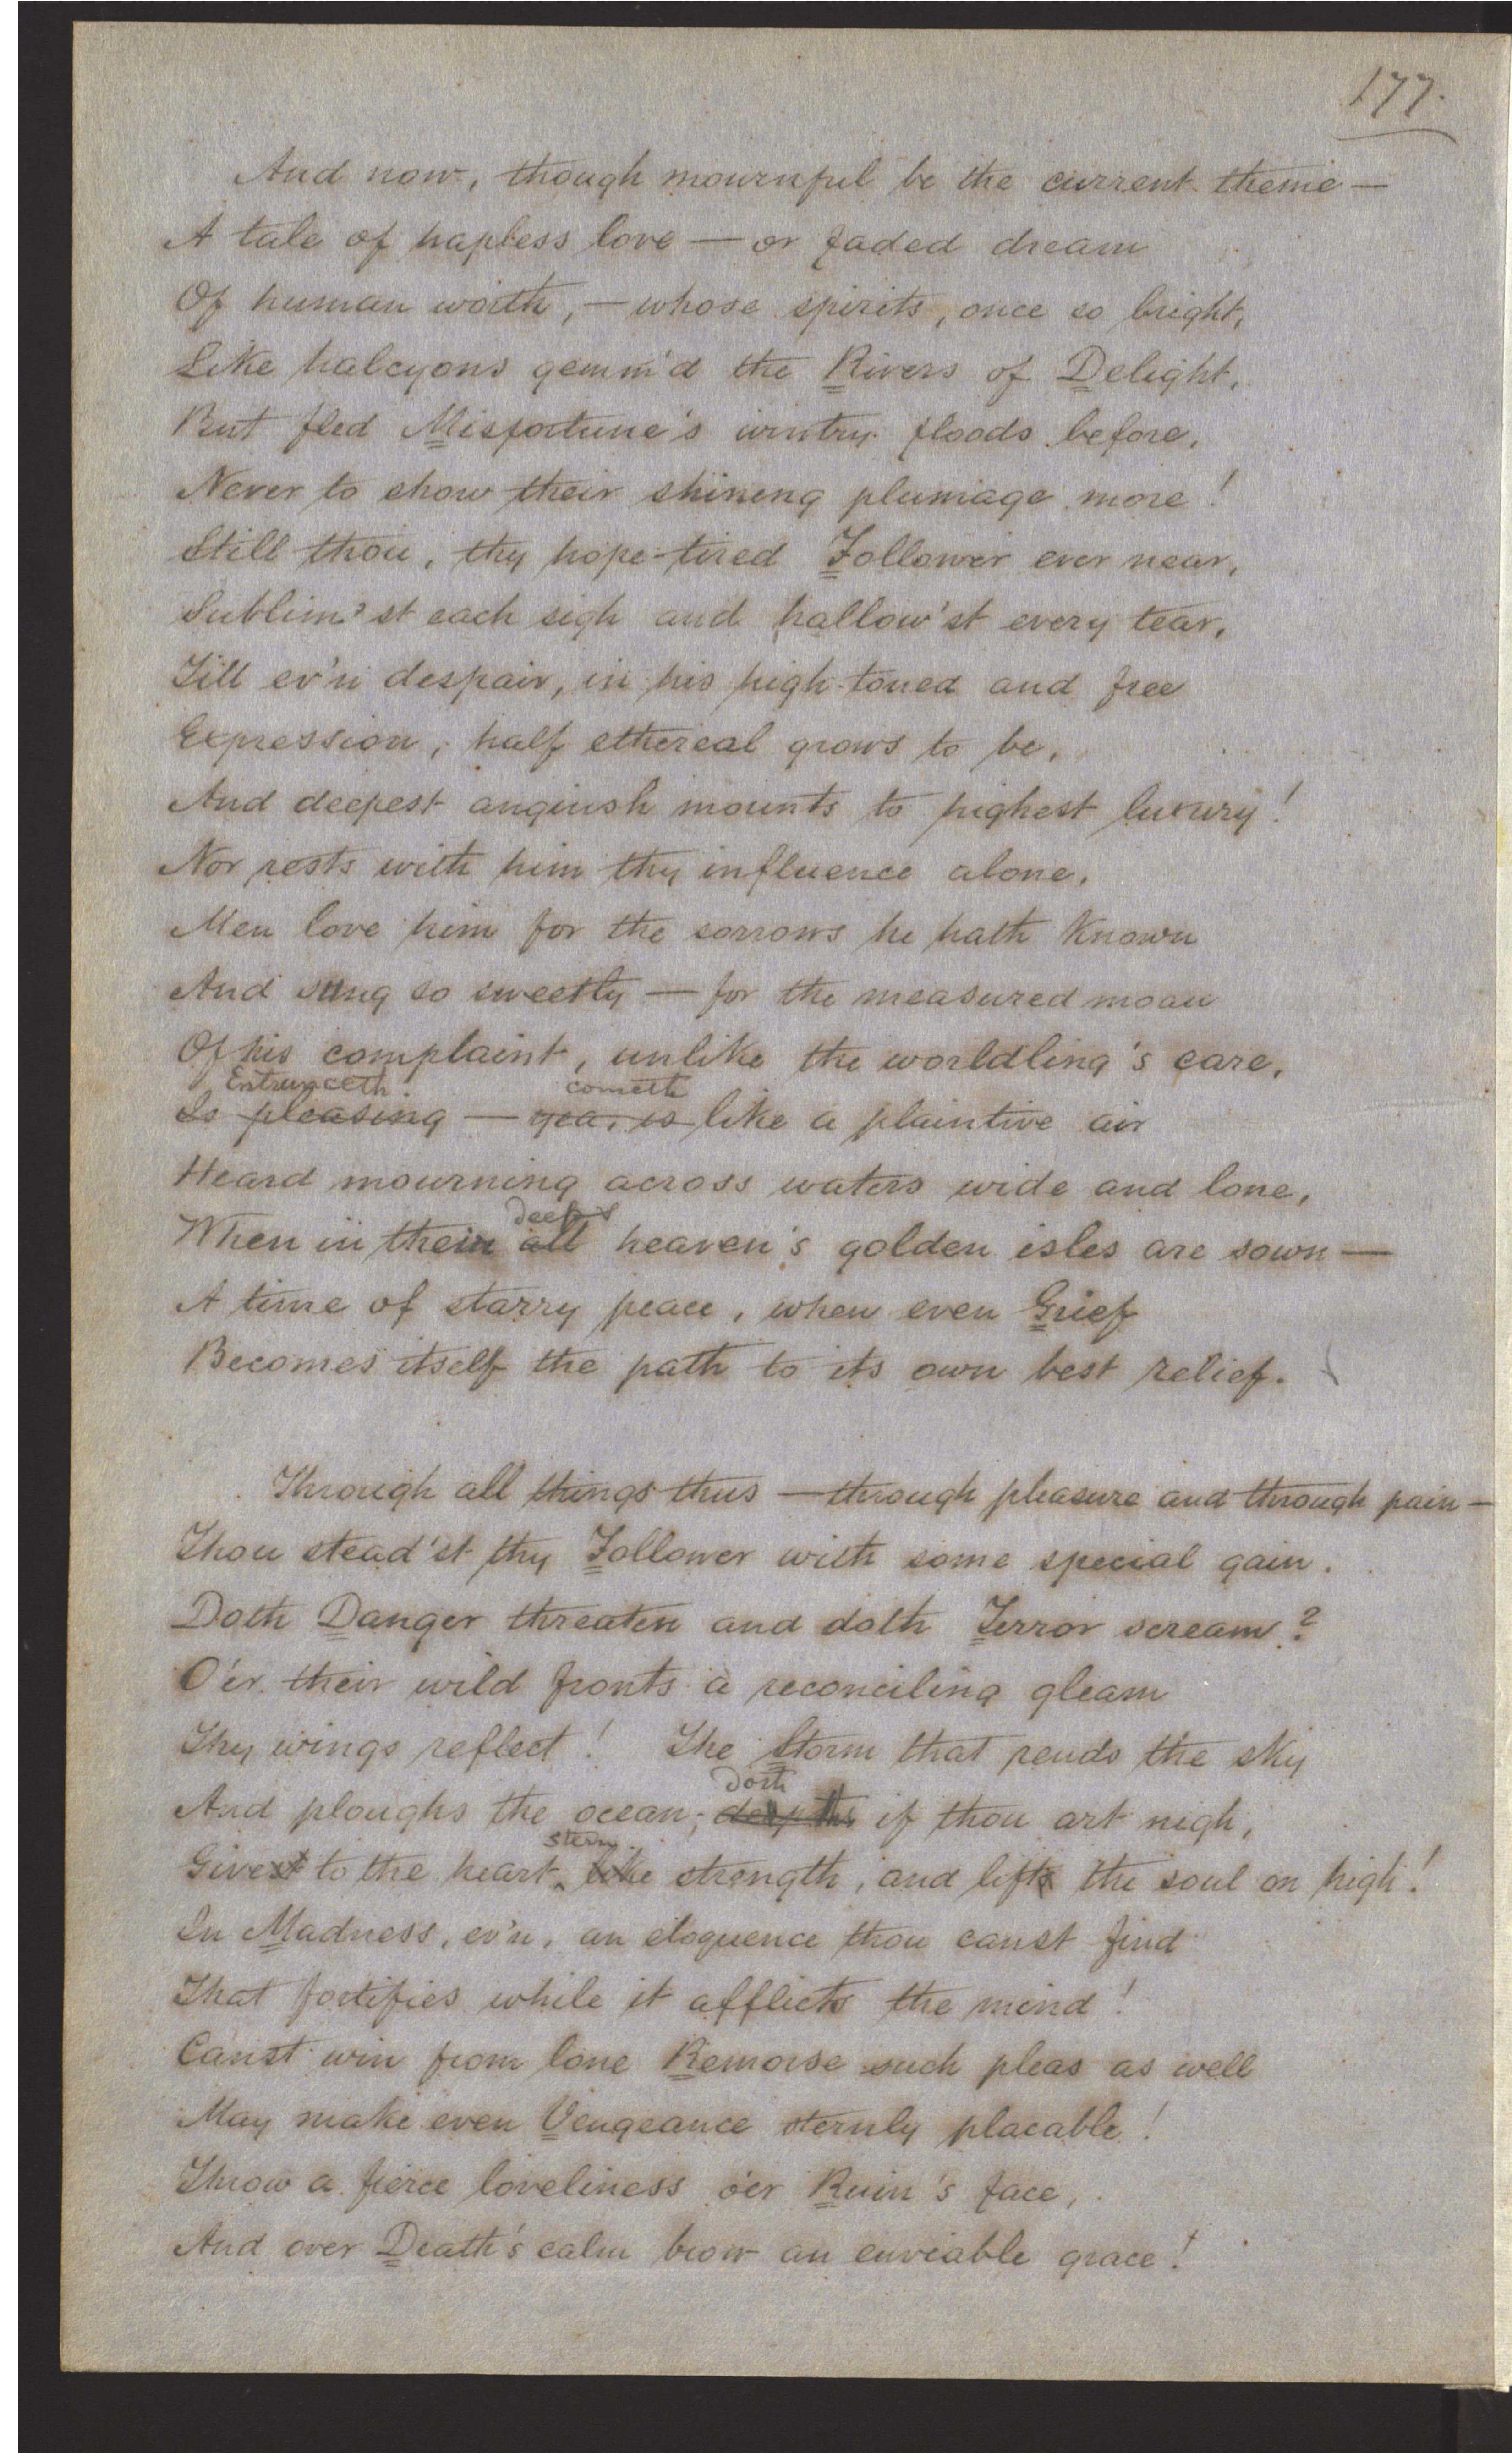 177.
And now, though mournful be the current theme —
A tale of hapless love — or faded dream
Of human worth, — whose spirits, once so bright,
Like halcyons gemm'd the Rivers of Delight,
But fled Misfortune's wintry floods before,
Never to show their shining plumage more!
Still thou, thy hope-tired Follower ever near,
Sublim'st each sigh and hallow'st every tear,
Till ev'n despair, in his high-toned and free
Expression, half ethereal grows to be,
And deepest anguish mounts to highest luxury!
Nor rests with him thy influence alone,
Men love him for the sorrows he hath known
And sung so sweetly — for the measured moan
Of his complaint, unlike the worldling's care,
Entranceth cometh
Is pleasing — yea, is like a plaintive air
Heard mourning across waters wide and lone,
deeps
When in their all heaven's golden isles are sown —
A time of starry peace, when even Grief
Becomes itself the path to its own best relief.
Through all things thus — through pleasure and through pain —
Thou stead'st thy Follower with some special gain.
Doth Danger threaten and doth Terror scream?
O'er their wild fronts a reconciling gleam
Thy wings reflect! The Storm that rends the sky
doth
And ploughs the ocean, depths if thou art nigh,
stern
Gives to the heart like strength, and lifts the soul on high!
In Madness, ev'n, an eloquence thou canst find
That fortifies while it afflicts the mind!
Canst win from lone Remorse such pleas as well
May make even Vengeance sternly placable!
Throw a fierce loveliness o'er Ruin's face,
And over Death's calm brow an enviable grace!